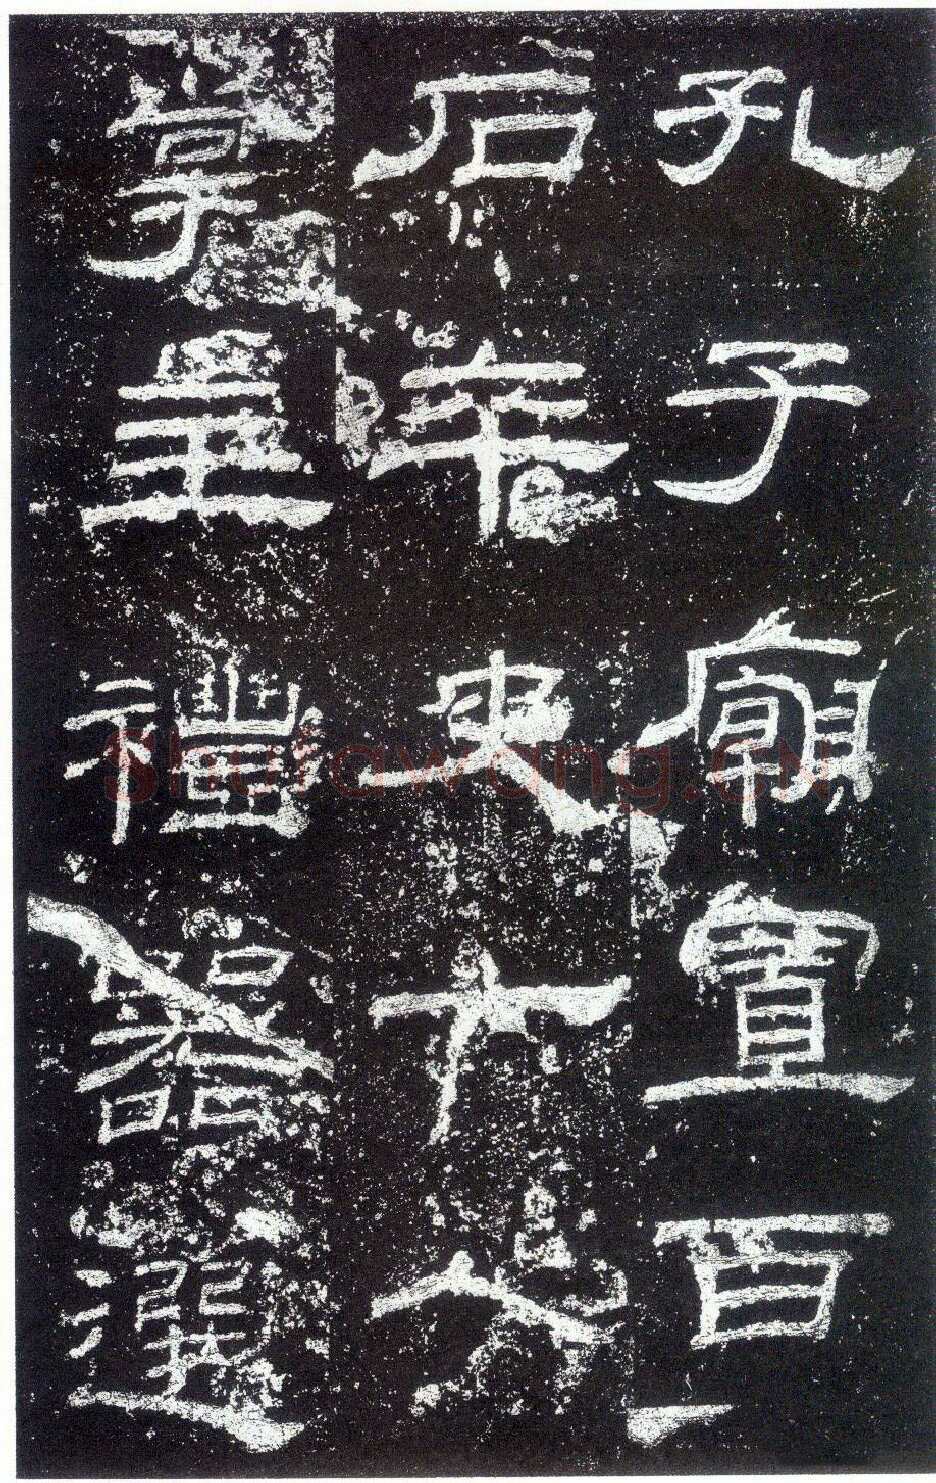 孔子廟置百
石卒史一人
掌主禮器選
Shufawang.CN